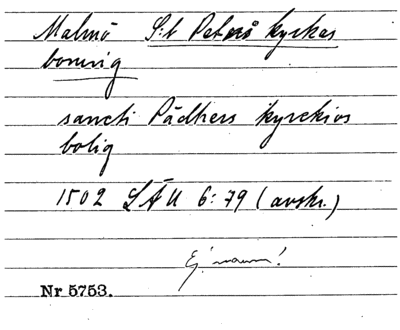 Malmö S:t Petrus kyrkas
boning
sancti Pädhers kyrckios
bolig
1502 LÄU 6:79 (avskr.)
Ej namn!
Nr 5753.